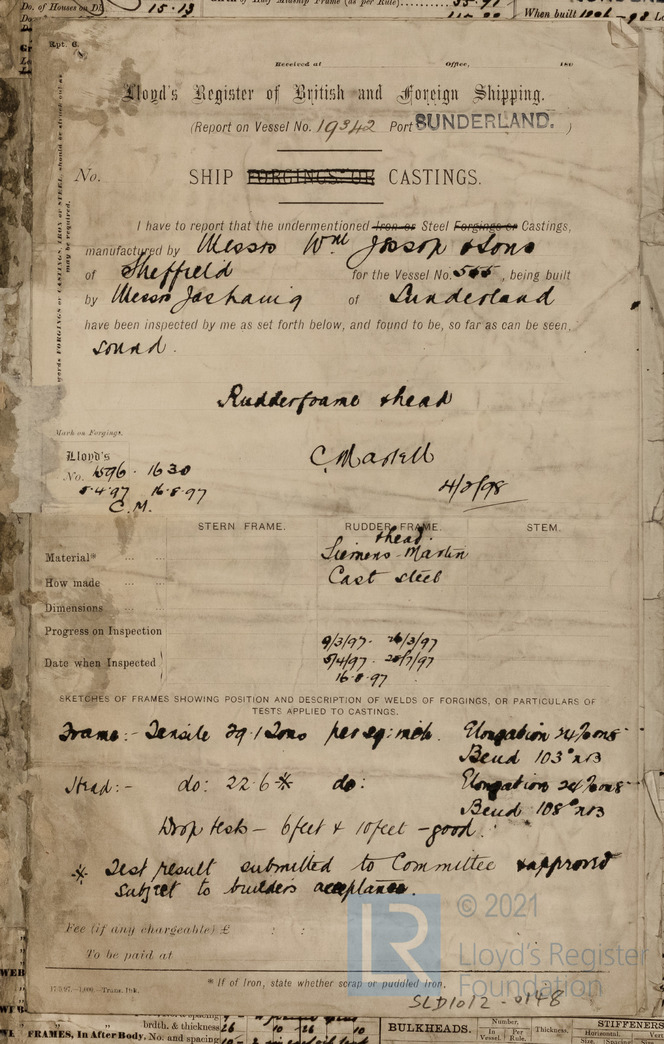 Do. of Houses on Dk 15·13
When built 1896–98
Rpt. 6.
Received at Office, 180
Lloyd's Register of British and Foreign Shipping.
(Report on Vessel No. 19342 Port SUNDERLAND. )
No. SHIP FORGINGS OR CASTINGS.
I have to report that the undermentioned Iron or Steel Forgings or Castings,
manufactured by Messrs Wm Jessop & Sons
of Sheffield for the Vessel No. , being built
by Messrs of Sunderland
have been inspected by me as set forth below, and found to be, so far as can be seen,
sound.
Rudderframe & head
Mark on Forgings.
Lloyd's
No. 1596 · 1630
5·4·97 16·8·97
C.M.
C Martell
4/2/98
STERN FRAME. RUDDER FRAME. STEM.
& head.
Material* Siemens-Martin
How made Cast steel
Dimensions
Progress on Inspection
9/3/97 · 26/3/97
Date when Inspected 5/4/97 · 28/7/97
16·8·97
SKETCHES OF FRAMES SHOWING POSITION AND DESCRIPTION OF WELDS OF FORGINGS, OR PARTICULARS OF
TESTS APPLIED TO CASTINGS.
Frame:- Tensile 29·1 Tons per sq: inch. Elongation 24% on 8"
Bend 103°
Head:- do: 22·6 * do: Elongation 24% on 8"
Bend 108°
Drop tests – 6 feet & 10 feet – good.
* Test result submitted to Committee & approved
subject to builders acceptance.
Fee (if any chargeable) £ : :
To be paid at
* If of Iron, state whether scrap or puddled Iron.
17/9/97.—1,000.—Transf. Ink.
© 2021
LR
Lloyd's Register
Foundation
SLD1012-0148
FRAMES, In After Body. No. and spacing
brdth. & thickness 26 10 26 10
BULKHEADS.
Number.
In Vessel. Per Rule.
Thickness.
STIFFENERS
Horizontal.
Size. Spacing.